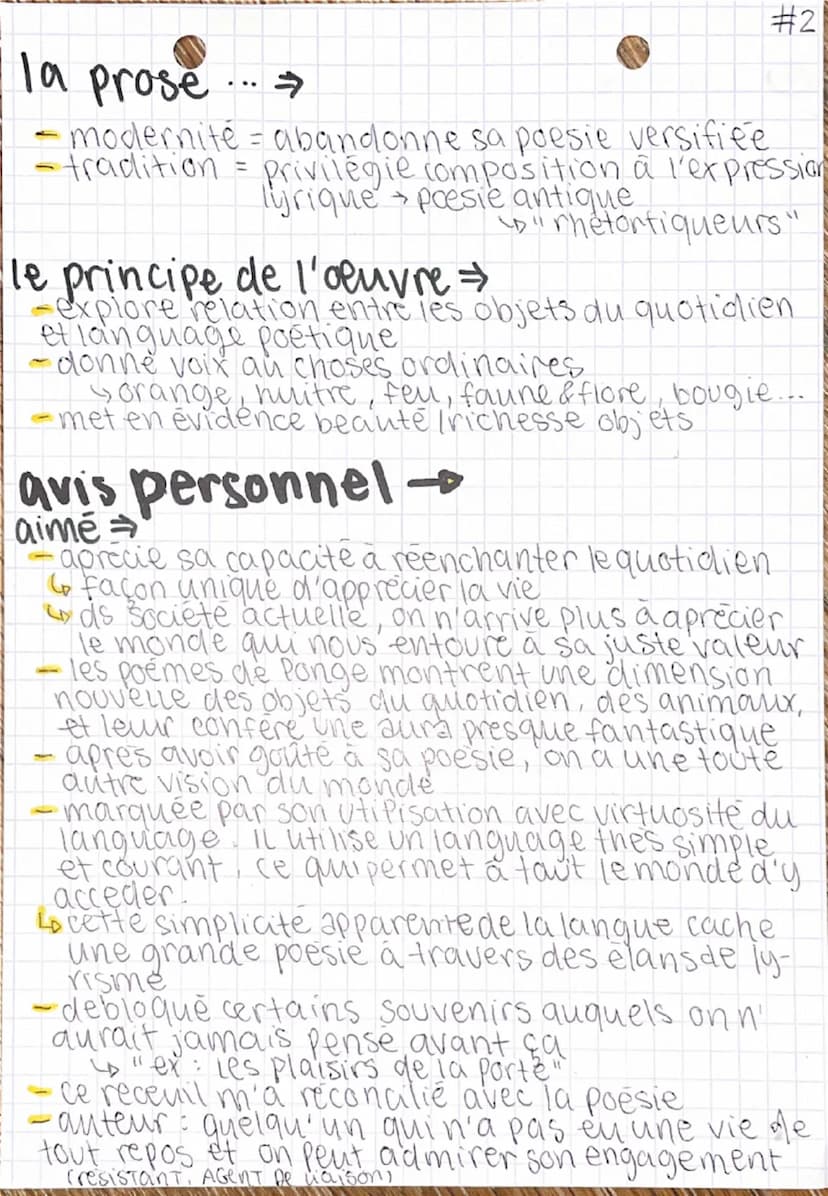 #2
la prose ... ⇒
- modernité = abandonne sa poesie versifiée
- tradition = privilégie composition à l'expression
lyrique → poesie antique
↳ "rhétortiqueurs"
le principe de l'œuvre ⇒
- explore relation entre les objets du quotidien
et language poétique
- donne voix au choses ordinaires
↳ orange, huitre, feu, faune & flore, bougie...
- met en évidence beauté/richesse objets
avis personnel →
aimé ⇒
- aprécie sa capacité à réenchanter le quotidien
↳ façon unique d'apprécier la vie
↳ ds société actuelle, on n'arrive plus à aprécier
le monde qui nous entoure à sa juste valeur
- les poémes de Ponge montrent une dimension
nouvelle des objets du quotidien, des animaux,
et leur confère une aura presque fantastique
- après avoir goûté à sa poésie, on a une toute
autre vision du monde
- marquée par son utilisation avec virtuosité du
language. Il utilise un language très simple
et courant, ce qui permet à tout le monde d'y
acceder.
↳ cette simplicité apparente de la langue cache
une grande poésie à travers des élans de ly-
risme
- debloqué certains souvenirs auquels on n'
aurait jamais pensé avant ça
↳ "ex : Les plaisirs de la porte"
- ce receuil m'a réconcilié avec la poésie
- auteur : quelqu'un qui n'a pas eu une vie de
tout repos et on peut admirer son engagement
(résistant, agent de liaison)